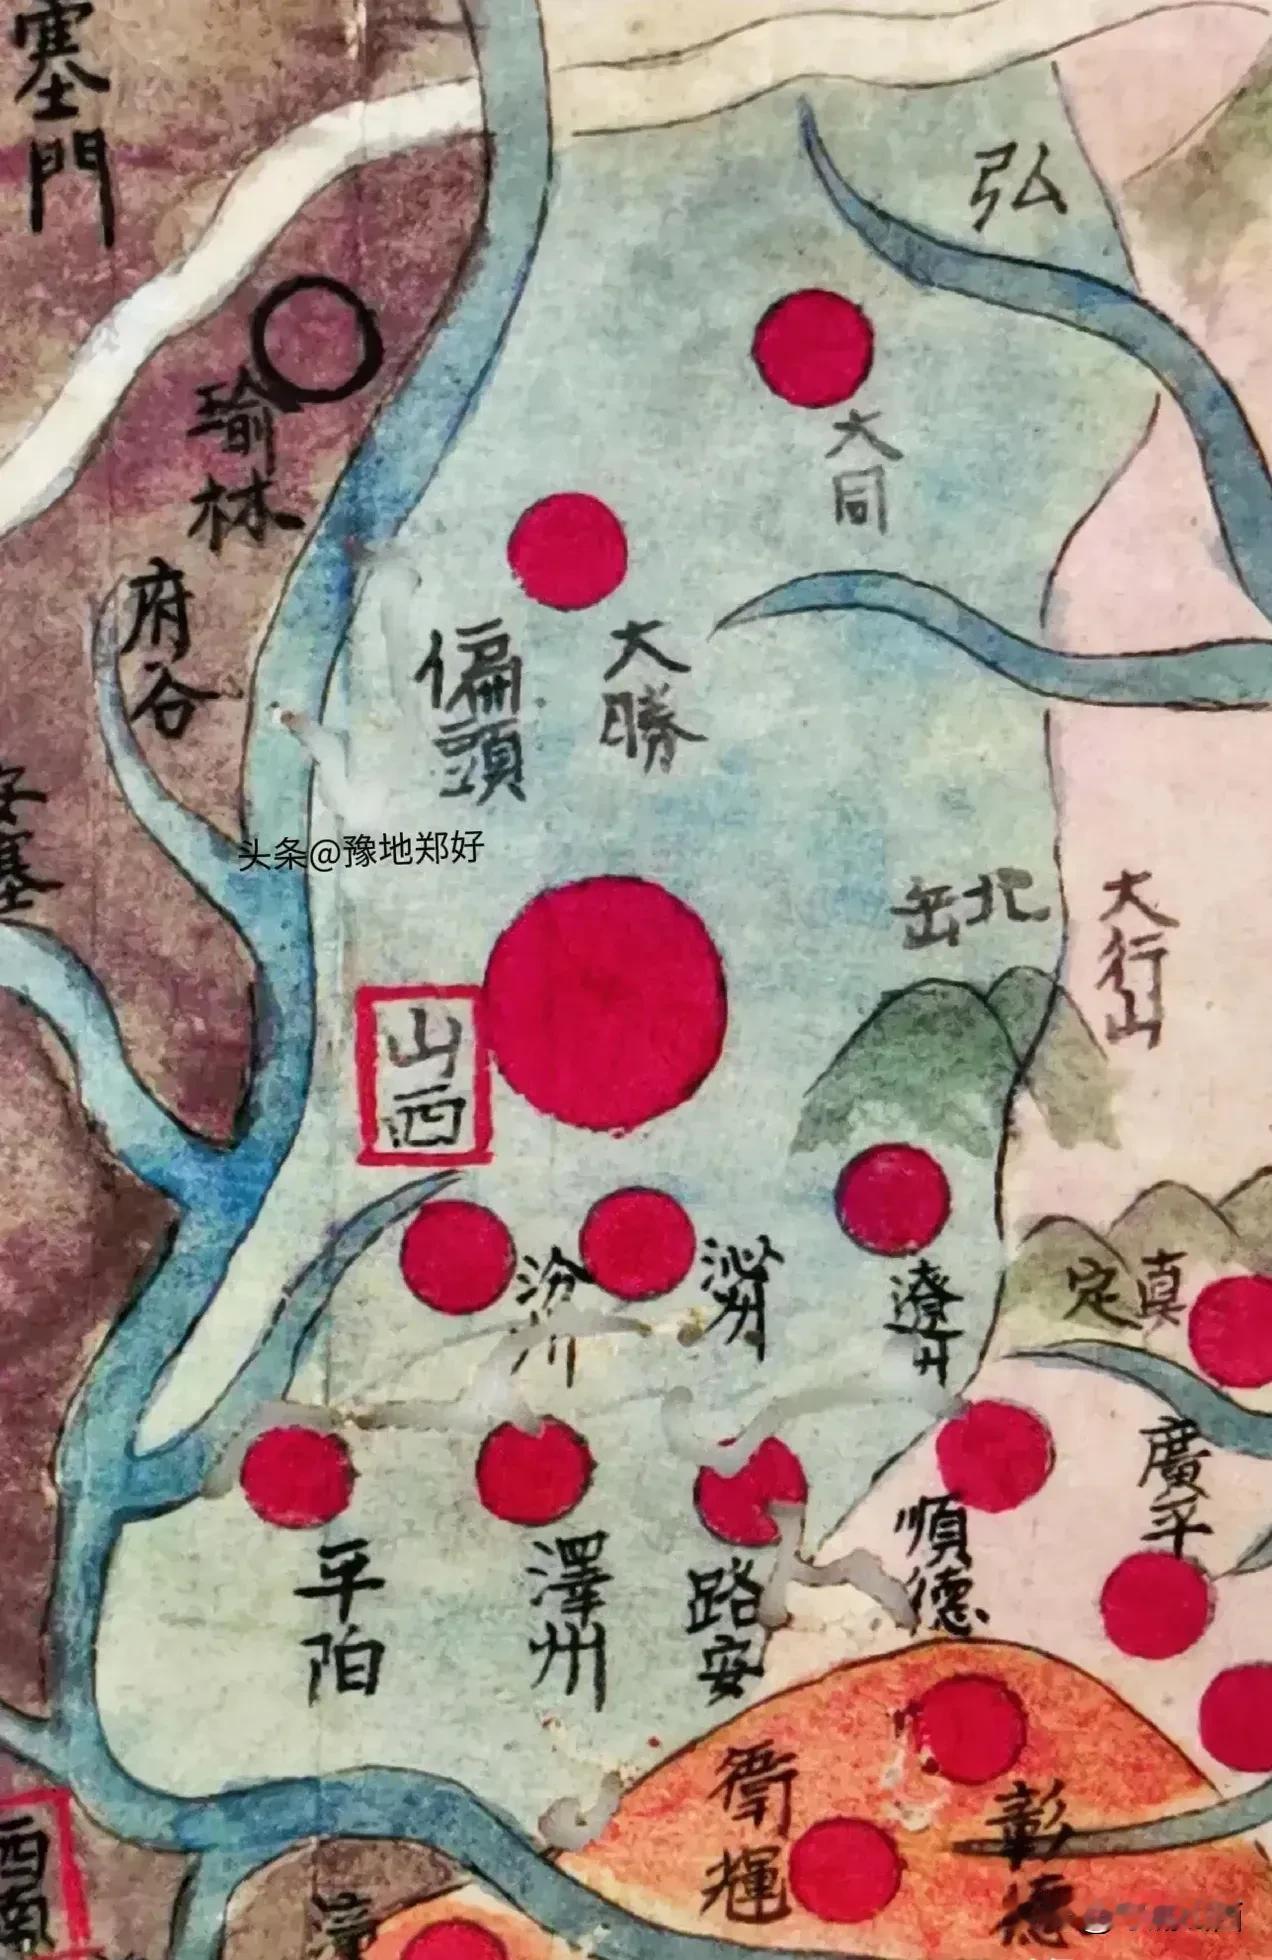 塞門
弘
大同
瑜林
府谷
偏頭
大勝
安塞
头条@豫地郑好
北岳
大行山
山西
汾州
沁州
遼州
真定
廣平
順德
平陌
澤州
路安
衛輝
彰德